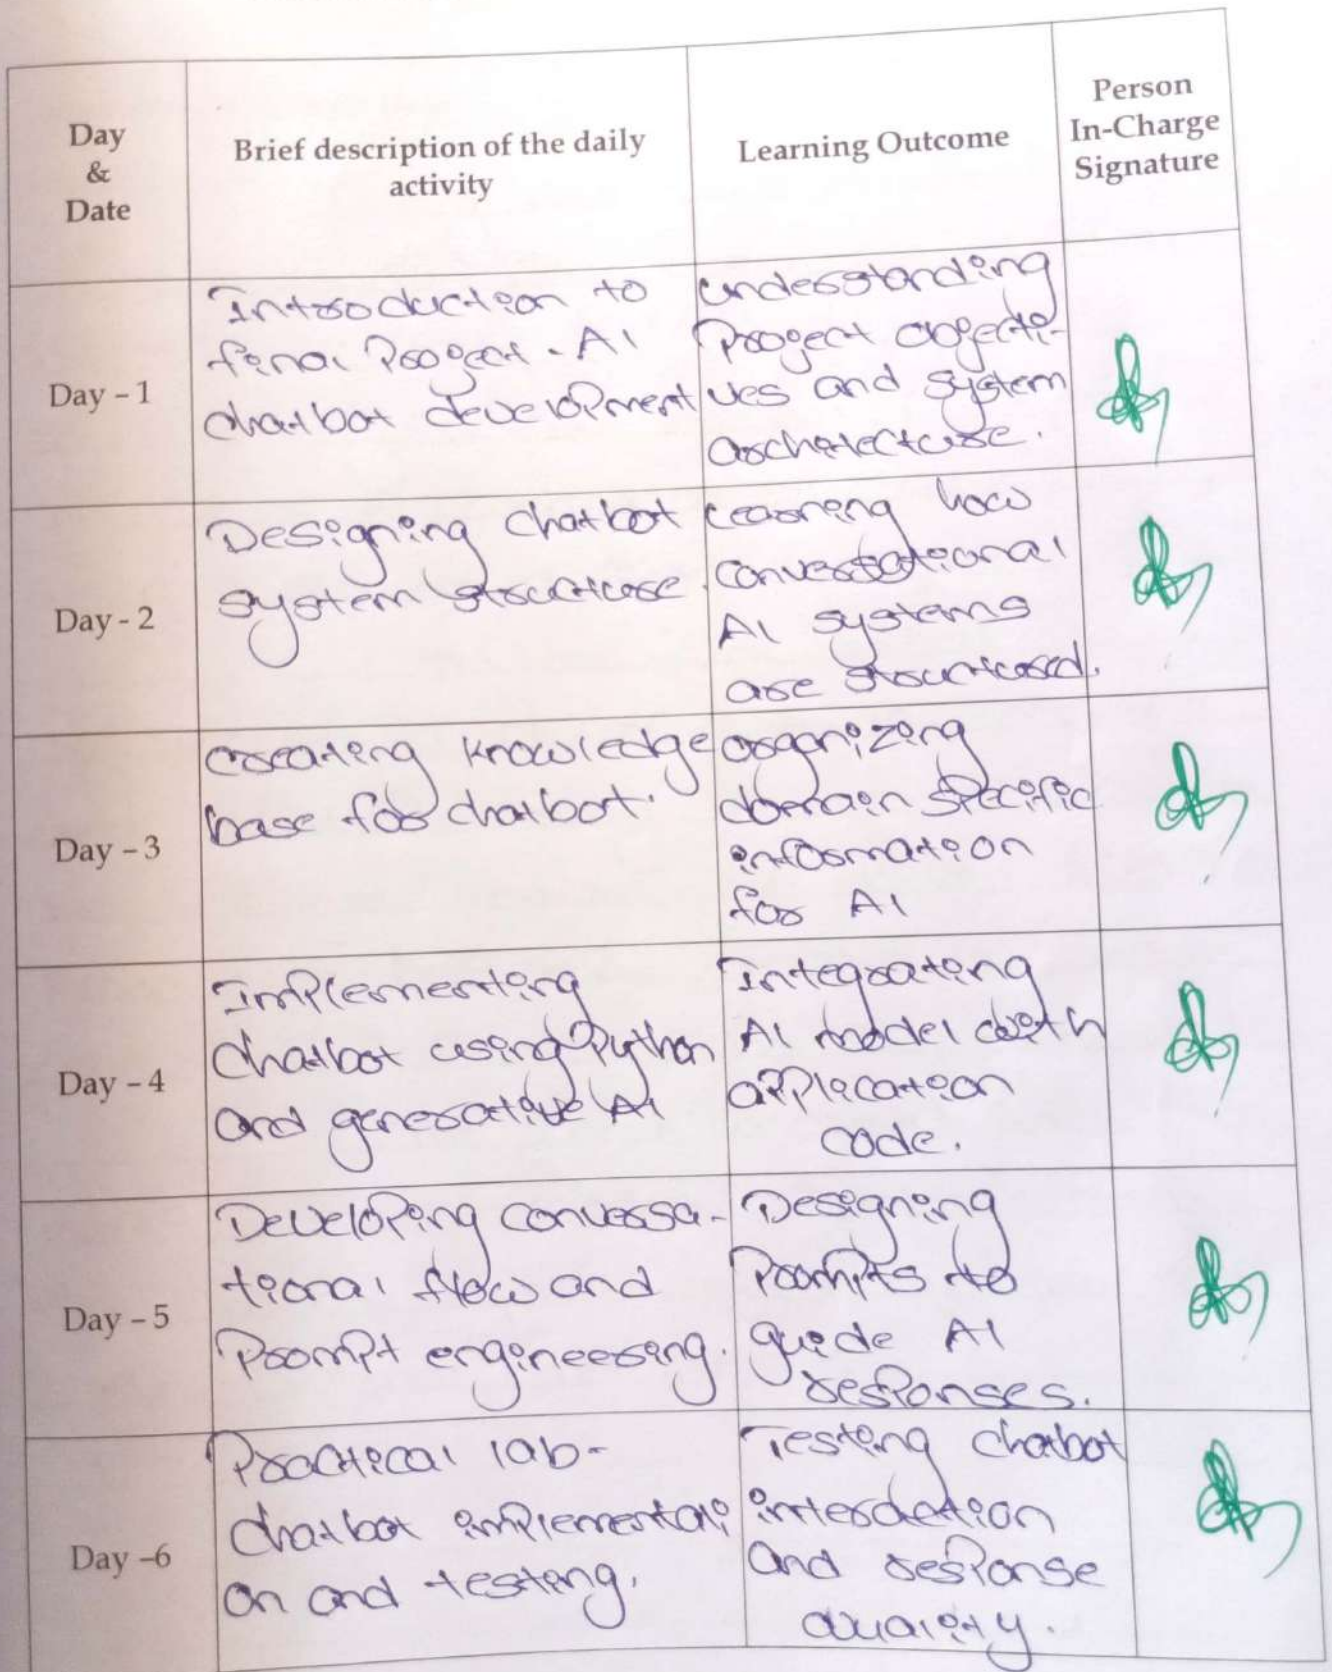 Day
&
Date
Brief description of the daily
activity
Learning Outcome
Person
In-Charge
Signature
Day - 1
Introduction to
final Project - AI
chatbot development
understanding
Project objecti-
ves and system
architecture.
Day - 2
Designing chatbot
system structure.
Learning how
conversational
AI systems
are structured.
Day - 3
creating knowledge
base for chatbot.
organizing
domain specific
information
for AI
Day - 4
Implementing
chatbot using Python
and generative AI
Integrating
AI model with
application
code.
Day - 5
Developing conversa-
tional flow and
Prompt engineering.
Designing
Prompts to
guide AI
responses.
Day -6
Practical lab-
chatbot implementati
on and testing.
Testing chatbot
interaction
and response
quality.